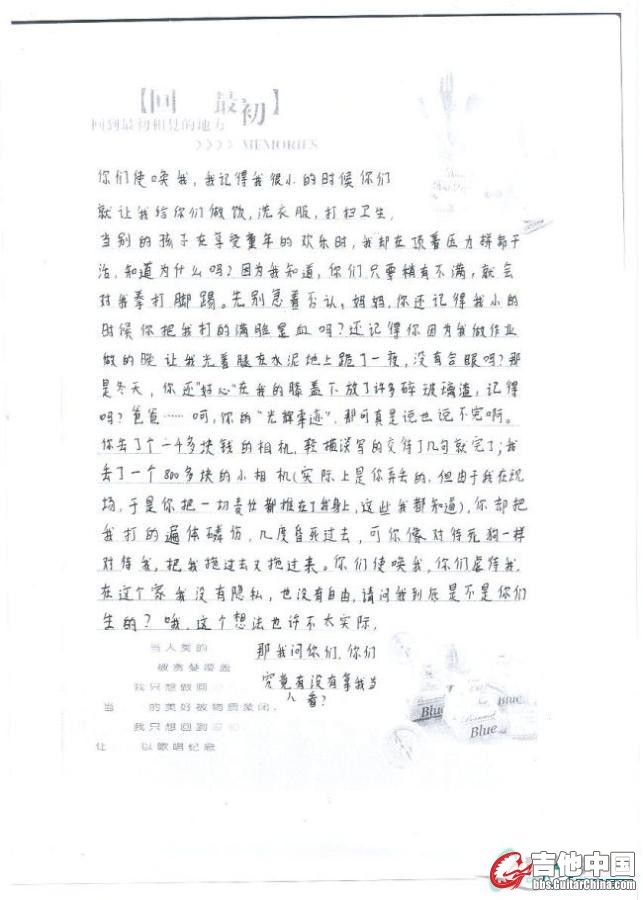 【回 最初】
回到最初相见的地方
>>>> MEMORIES
你们使唤我，我记得我很小的时候你们
就让我给你们做饭，洗衣服，打扫卫生，
当别的孩子在享受童年的欢乐时，我却在顶着压力拼命干
活，知道为什么吗？因为我知道，你们只要稍有不满，就会
对我拳打脚踢。先别急着否认，妈妈，你还记得我小的
时候你把我打的满脸是血吗？还记得你因为我做作业
做的晚让我光着腿在水泥地上跪了一夜，没有合眼吗？那
是冬天，你还"好心"在我的膝盖下放了许多碎玻璃渣，记得
吗？爸爸……呵，你的"光辉事迹"，那可真是说也说不完啊。
你丢了个一4多块钱的相机，轻描淡写的交待了几句就完了；我
丢了一个800多块的小相机（实际上是你弄丢的，但由于我在现
场，于是你把一切责任都推在了我身上，这些我都知道），你却把
我打的遍体磷伤，几度昏死过去，可你像对待死狗一样
对待我，把我拖过去又拖过来。你们使唤我，你们虐待我，
在这个家我没有隐私，也没有自由，请问我到底是不是你们
生的？哦，这个想法也许不太实际，
那我问你们，你们
究竟有没有拿我当
人看？
当人类的
被贪婪覆盖
我只想做回
当 的美好被物质蒙闭，
我只想回到
让 以歌唱纪念
Blue
Blue
吉他中国
bbs.Guitarchina.com